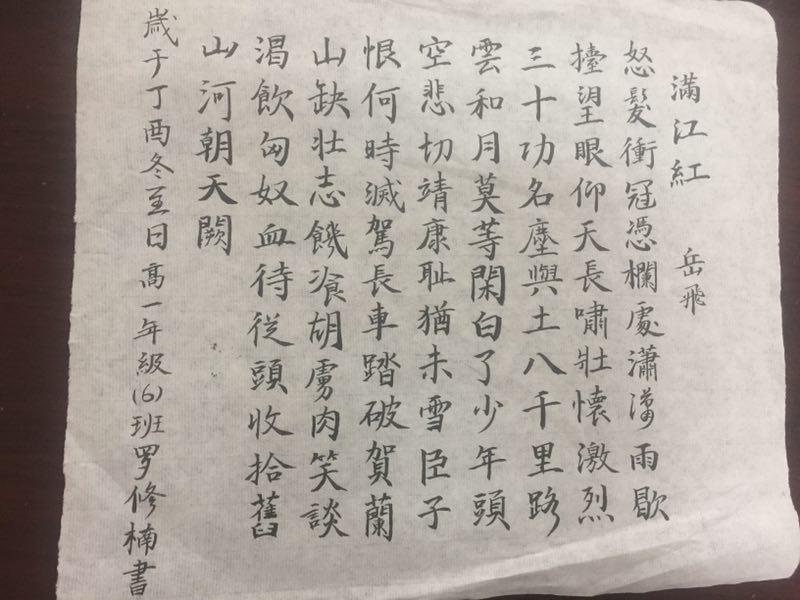 滿江紅 岳飛
怒髮衝冠憑欄處瀟瀟雨歇
擡望眼仰天長嘯壯懷激烈
三十功名塵與土八千里路
雲和月莫等閑白了少年頭
空悲切靖康耻猶未雪臣子
恨何時滅駕長車踏破賀蘭
山缺壯志饑飡胡虜肉笑談
渴飲匈奴血待從頭收拾舊
山河朝天闕
歲于丁酉冬至日高一年級(6)班罗修楠書